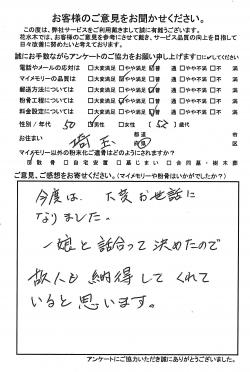 お客様のご意見をお聞かせください。
この度は、弊社サービスをご利用戴きまして誠に有難うございます。
花水木では、お客様のご意見を参考にさせて戴き、サービス品質の向上を目指して
日々改善に努めたいと考えております。
誠にお手数ながらアンケートのご協力をお願い申し上げます
電話やメールの応対は □大変満足 □やや満足 普通 □やや不満 □不満
マイメモリーの品質は □大変満足 □やや満足 普通 □やや不満 □不満
郵送方法については □大変満足 □やや満足 普通 □やや不満 □不満
粉骨工程については □大変満足 □やや満足 普通 □やや不満 □不満
料金設定については □大変満足 □やや満足 普通 □やや不満 □不満
性別/年代 □男性 □女性 歳代
お住まい 埼玉 都道府県 市区
マイメモリー以外の粉末化ご遺骨はどうされますか?
□散骨 □自宅安置 □墓じまい □合同墓・樹木葬
ご意見、ご感想をお寄せください。(マイメモリーや粉骨はいかがでしたか?)
今度は、大変お世話に
なりました。
一娘と話合って決めたので
故人も納得してくれて
いると思います。
アンケートにご協力いただき誠にありがとうございました。